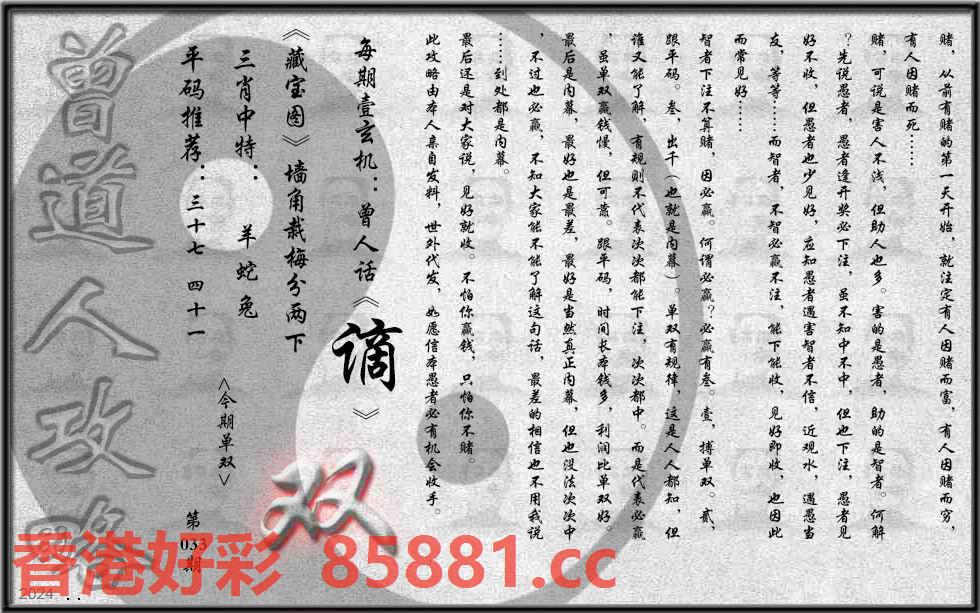 赌，从前有赌的第一天开始，就注定有人因赌而富，有人因赌而穷，
有人因赌而死……
赌，可说是害人不浅，但助人也多。害的是愚者，助的是智者。何解
？先说愚者，愚者逢开奖必下注，虽不知中不中，但也下注，愚者见
好不收，但愚者也少见好，应知愚者遇害智者不信，近观水，遇愚当
友，等等……而智者，不智必赢不注，能下能收，见好即收，也因此
而常见好……
智者下注不算赌，因必赢。何谓必赢？必赢有叁。壹，搏单双。贰，
跟平码。叁，出千（也就是内幕）。单双有规律，这是人人都知，但
谁又能了解，有规则不代表次次都能下注，次次都中。而是代表必赢
，虽单双赢钱慢，但可靠。跟平码，时间长本钱多，利润比单双好。
最后是内幕，最好也是最差，最好是当然真正内幕，但也没法次次中
，不过也必赢，不知大家能不能了解这句话，最差的相信也不用我说
……到处都是内幕。
最后还是对大家说，见好就收。不怕你赢钱，只怕你不赌。
此攻略由本人亲自发料，世外代发，如愿信本愚者必有机会收手。
每期壹玄机：曾人话《谪》
《藏宝图》墙角栽梅分两下
三肖中特：羊蛇兔
平码推荐：三十七 四十一
<今期单双>
双
第
033
期
曾道人攻略
香港好彩 85881.cc
2024